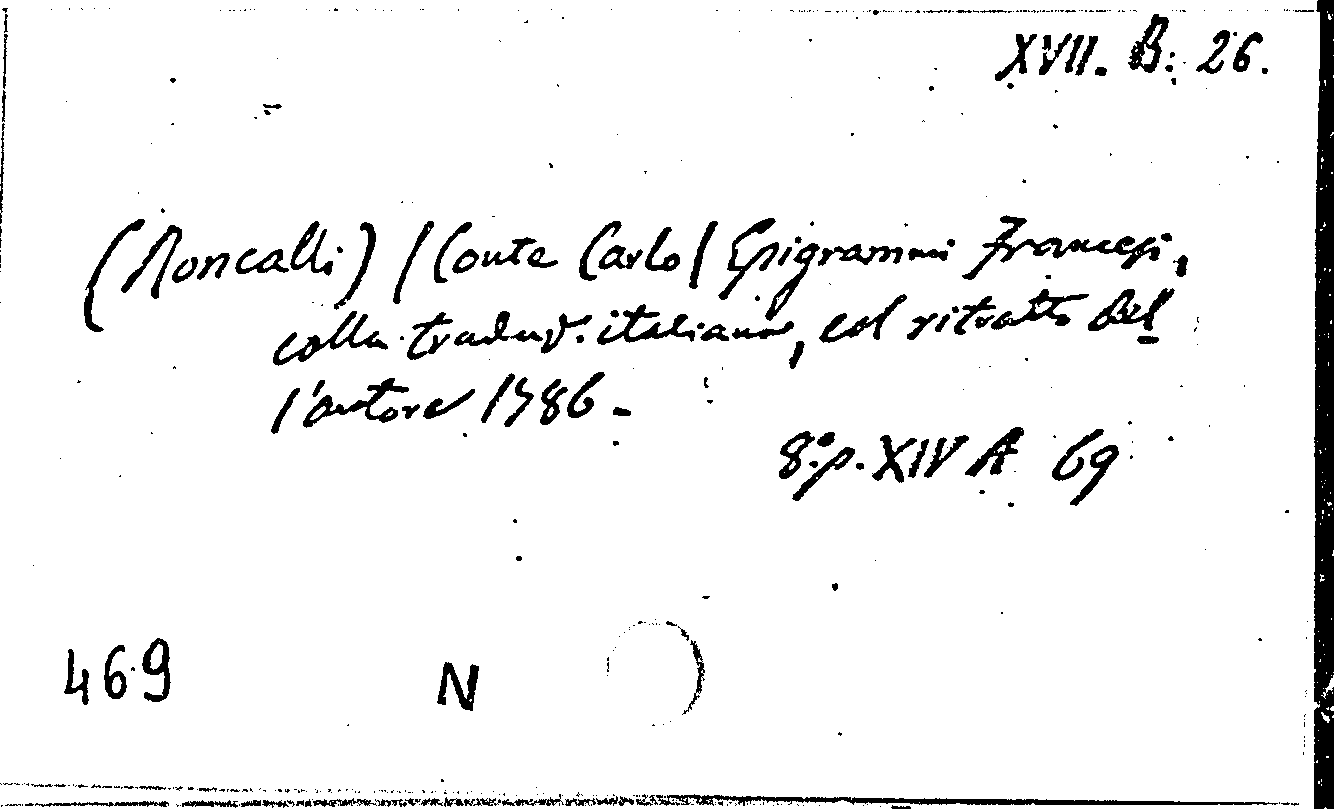 XVII. B. 26.
(Roncalli) / Conte Carlo / Epigrammi Francesi,
colla traduz. italiana, col ritratto del
l'autore 1786 -
8.° p. XIV A 69
469 N